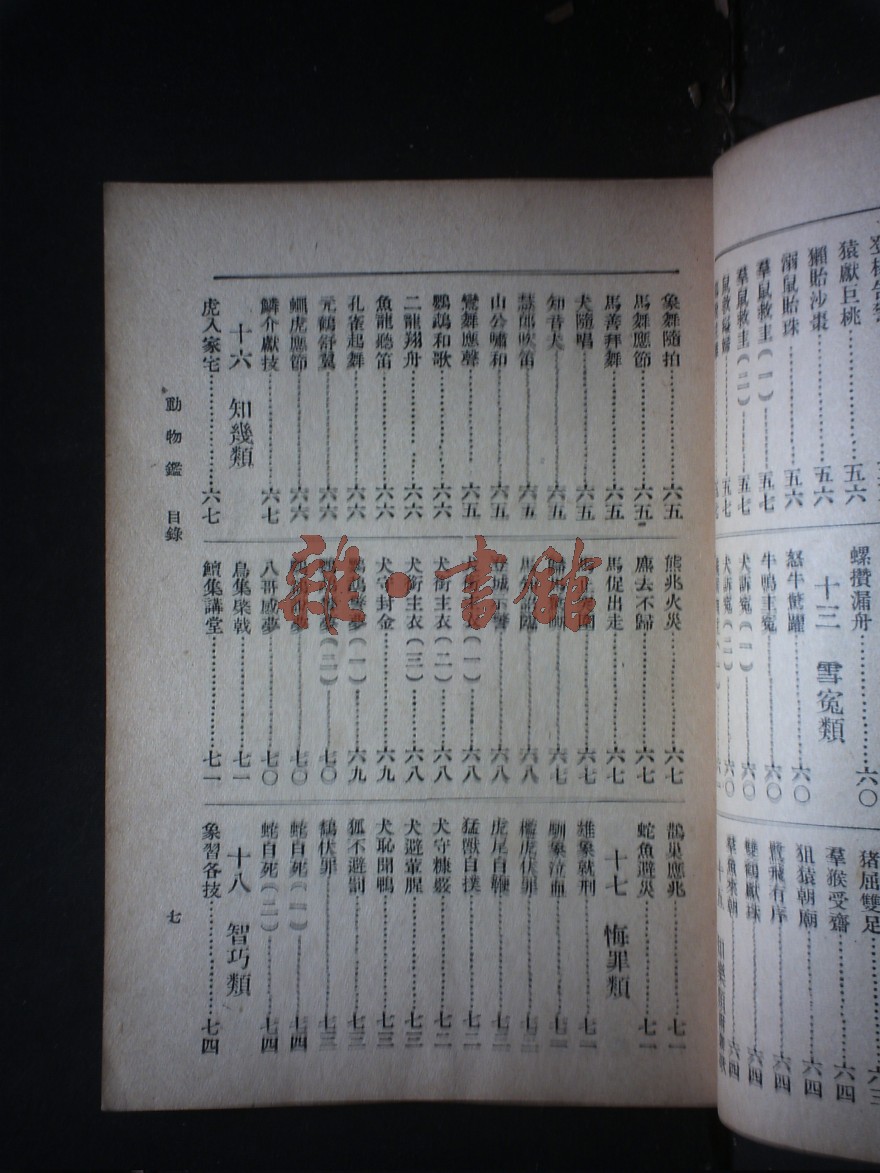 猿獻巨桃……五六
獺貽沙棗……五六
羣鼠救主（一）……五七
羣鼠救主（二）……五七
螺攢漏舟……六〇
十三　雪寃類
怒牛驚躍……六〇
牛鳴主寃……六〇
犬訴寃（一）……六〇
犬訴寃（二）……六〇
豬屈雙足……六三
羣猴受齋……六四
狙猿朝廟……六四
雙鶴獻珠……六四
羣魚來朝……六四
象舞隨拍……六五
馬舞應節……六五
馬善拜舞……六五
犬隨唱……六五
知音犬……六五
山公嘯和……六五
鸞舞應聲……六五
鸚鵡和歌……六六
二龍翔舟……六六
魚龍聽笛……六六
孔雀起舞……六六
元鶴舒翼……六六
蠅虎應節……六六
鱗介獻技……六七
十六　知幾類
虎入家宅……六七
熊兆火災……六七
鹿去不歸……六七
馬促出走……六七
犬銜主衣（二）……六八
犬銜主衣（三）……六八
犬守封金……六九
八哥感夢……七〇
鳥集棨戟……七一
鱣集講堂……七一
鵲巢應兆……七一
蛇魚避災……七一
十七　悔罪類
雄象就刑
馴象泣血
檻虎伏罪
虎尾自鞭
猛獸自撲……七二
犬守糠籔……七二
犬避葷腥……七三
犬恥聞鴨……七三
狐不避罰……七三
鷂伏罪……七三
蛇自死（一）……七四
蛇自死（二）……七四
十八　智巧類
象習各技……七四
動物鑑　目錄
七
雜·書館